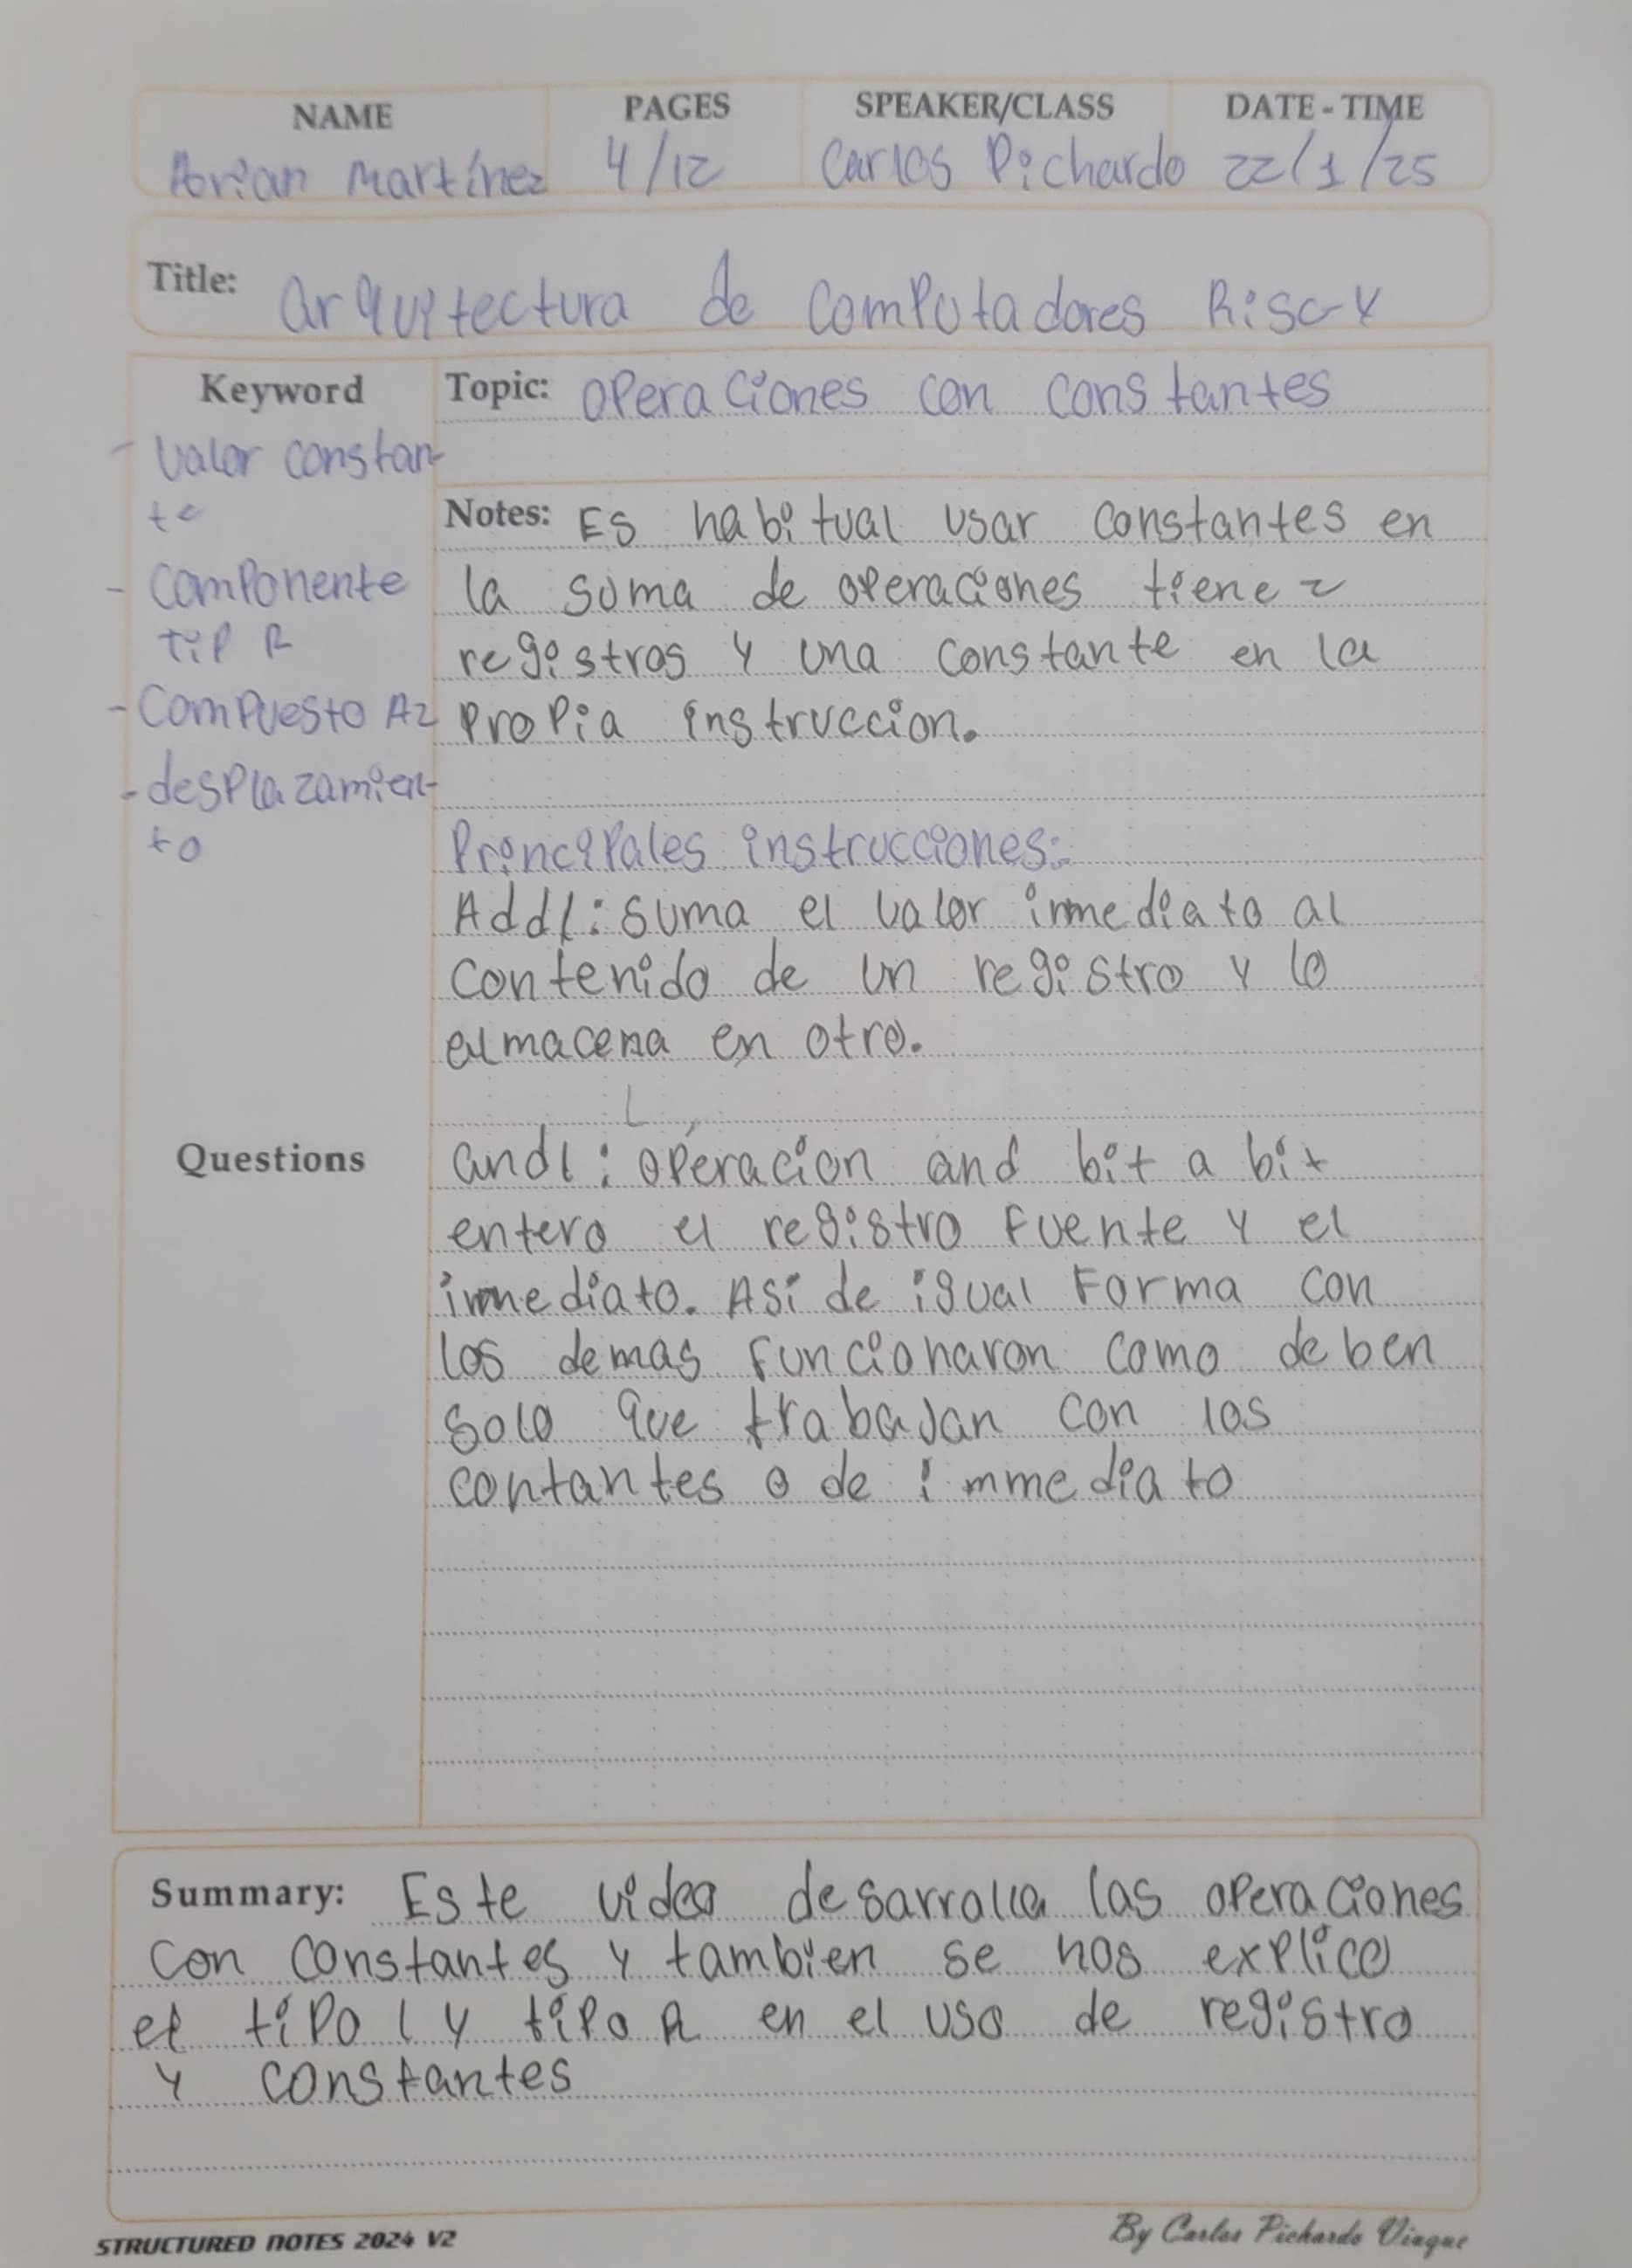 NAME PAGES SPEAKER/CLASS DATE - TIME
Arian Martínez 4/12 Carlos Pichardo 22/1/25
Title: arquitectura de computadores Risc-V
Keyword
- valor constan-
te
- componente
tip R
- compuesto A2
- desplazamien-
to
Topic: operaciones con constantes
Notes: Es habitual usar constantes en
la suma de operaciones tiene 2
registros y una constante en la
propia instruccion.
Principales instrucciones:
AddI: suma el valor inmediato al
contenido de un registro y lo
almacena en otro.
andI: operacion and bit a bit
entero el registro fuente y el
inmediato. Asi de igual forma con
los demas funcionaron como deben
solo que trabajan con las
contantes o de immediato
Questions
Summary: Este video desarrolla las operaciones
con constantes y tambien se nos explico
el tipo I y tipo R en el uso de registro
y constantes
STRUCTURED NOTES 2024 V2
By Carlos Pichardo Viuque